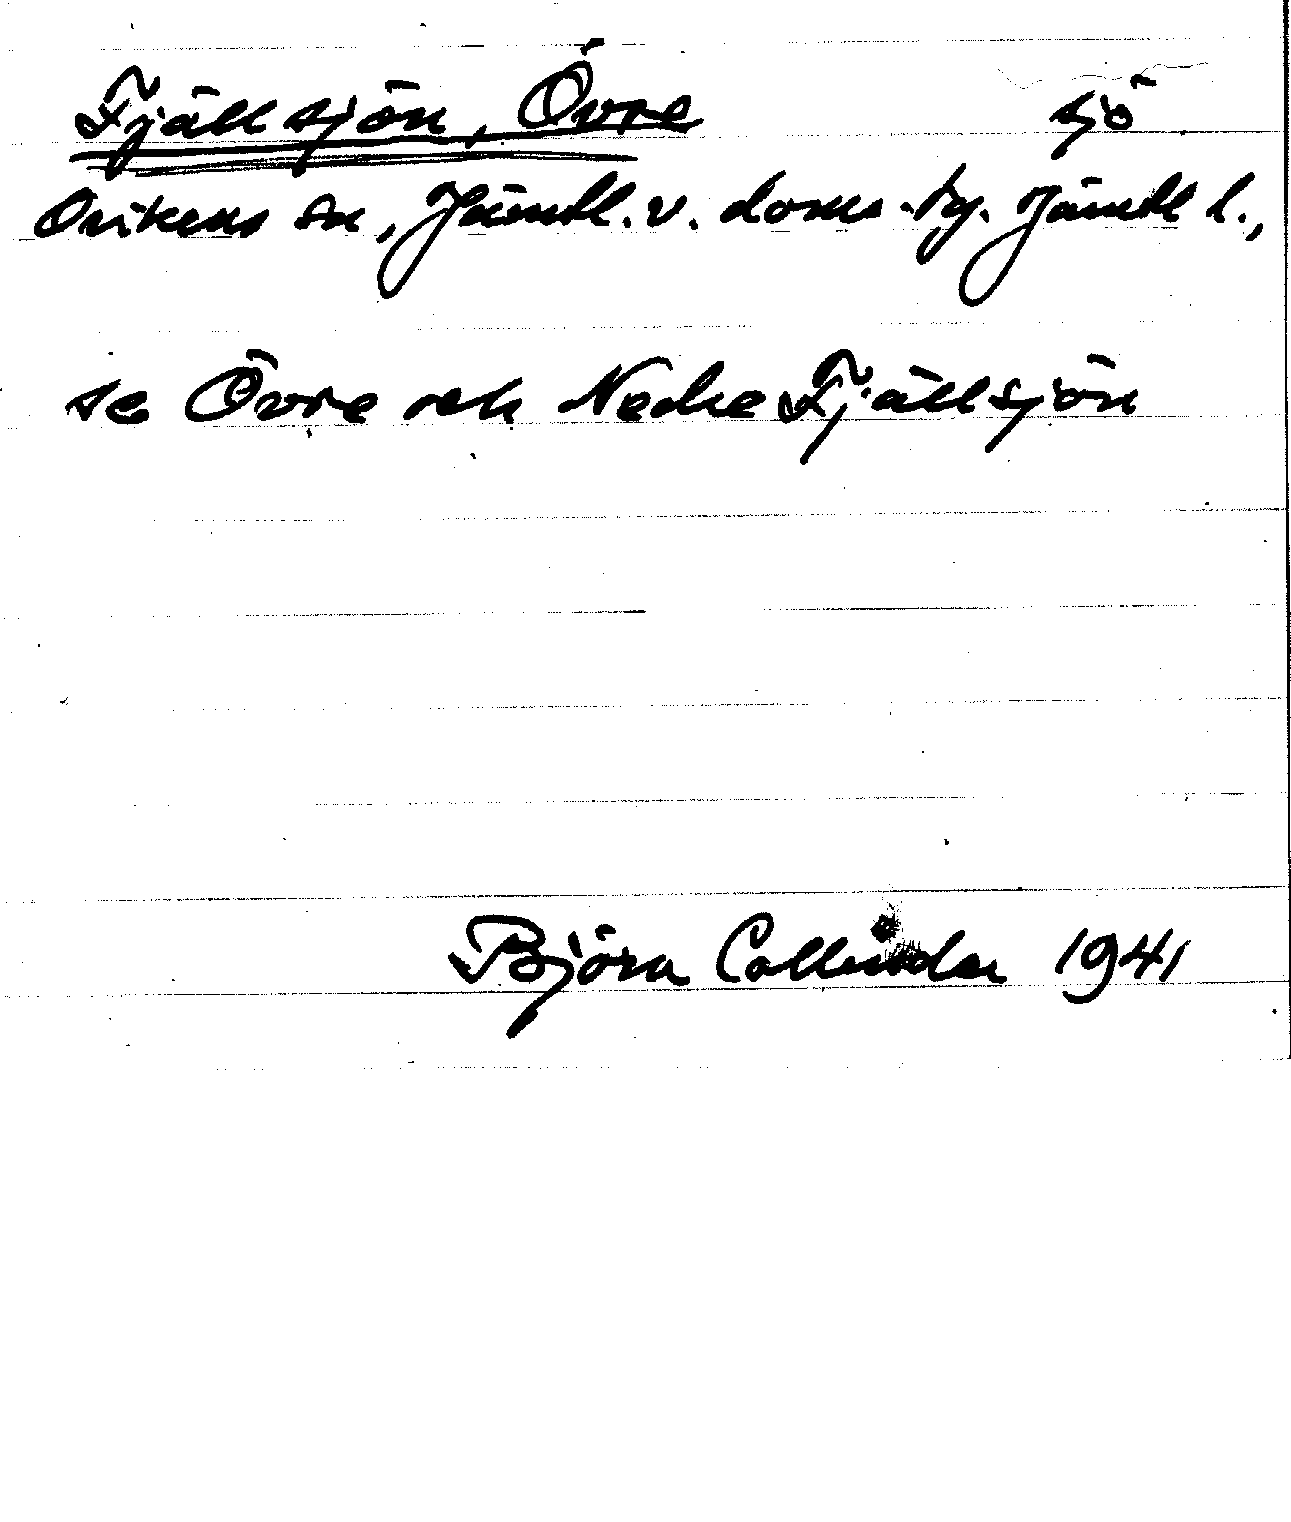 Fjällsjön, Övre sjö
Ovikens sn, Jämtl. v. doms. tg. Jämtl l.,
se Övre och Nedre Fjällsjön
Björn Collinder 1941